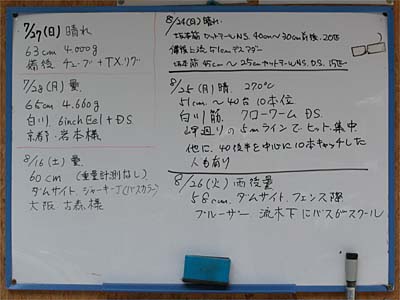 7/27(日) 晴れ
63cm 4.000g
備後 チューブ+TXリグ
7/28(月) 曇
65cm 4.660g
白川 6inch Eel + D.S.
京都・岩本様
8/16(土) 曇
60cm (重量計測なし)
ダムサイト、ジャーキーJ(バスカラー)
大阪 古森様
8/24(日) 晴れ.
カットテールN.S. 40cm〜30cm前後. 20匹
備後上流 51cm デスアダー
45cm〜25cm カットテールN.S. D.S. 15匹
8/25(月) 晴 27.0℃
51cm.〜40台 10本位
白川筋. フローワーム D.S.
岬周りの5mラインでヒット集中
他に. 40位半を中心に10本キャッチした
人も有り
8/26(火) 雨後曇
58cm. ダムサイト. フェンス際
ブルーザー 流木下にバスがスクール